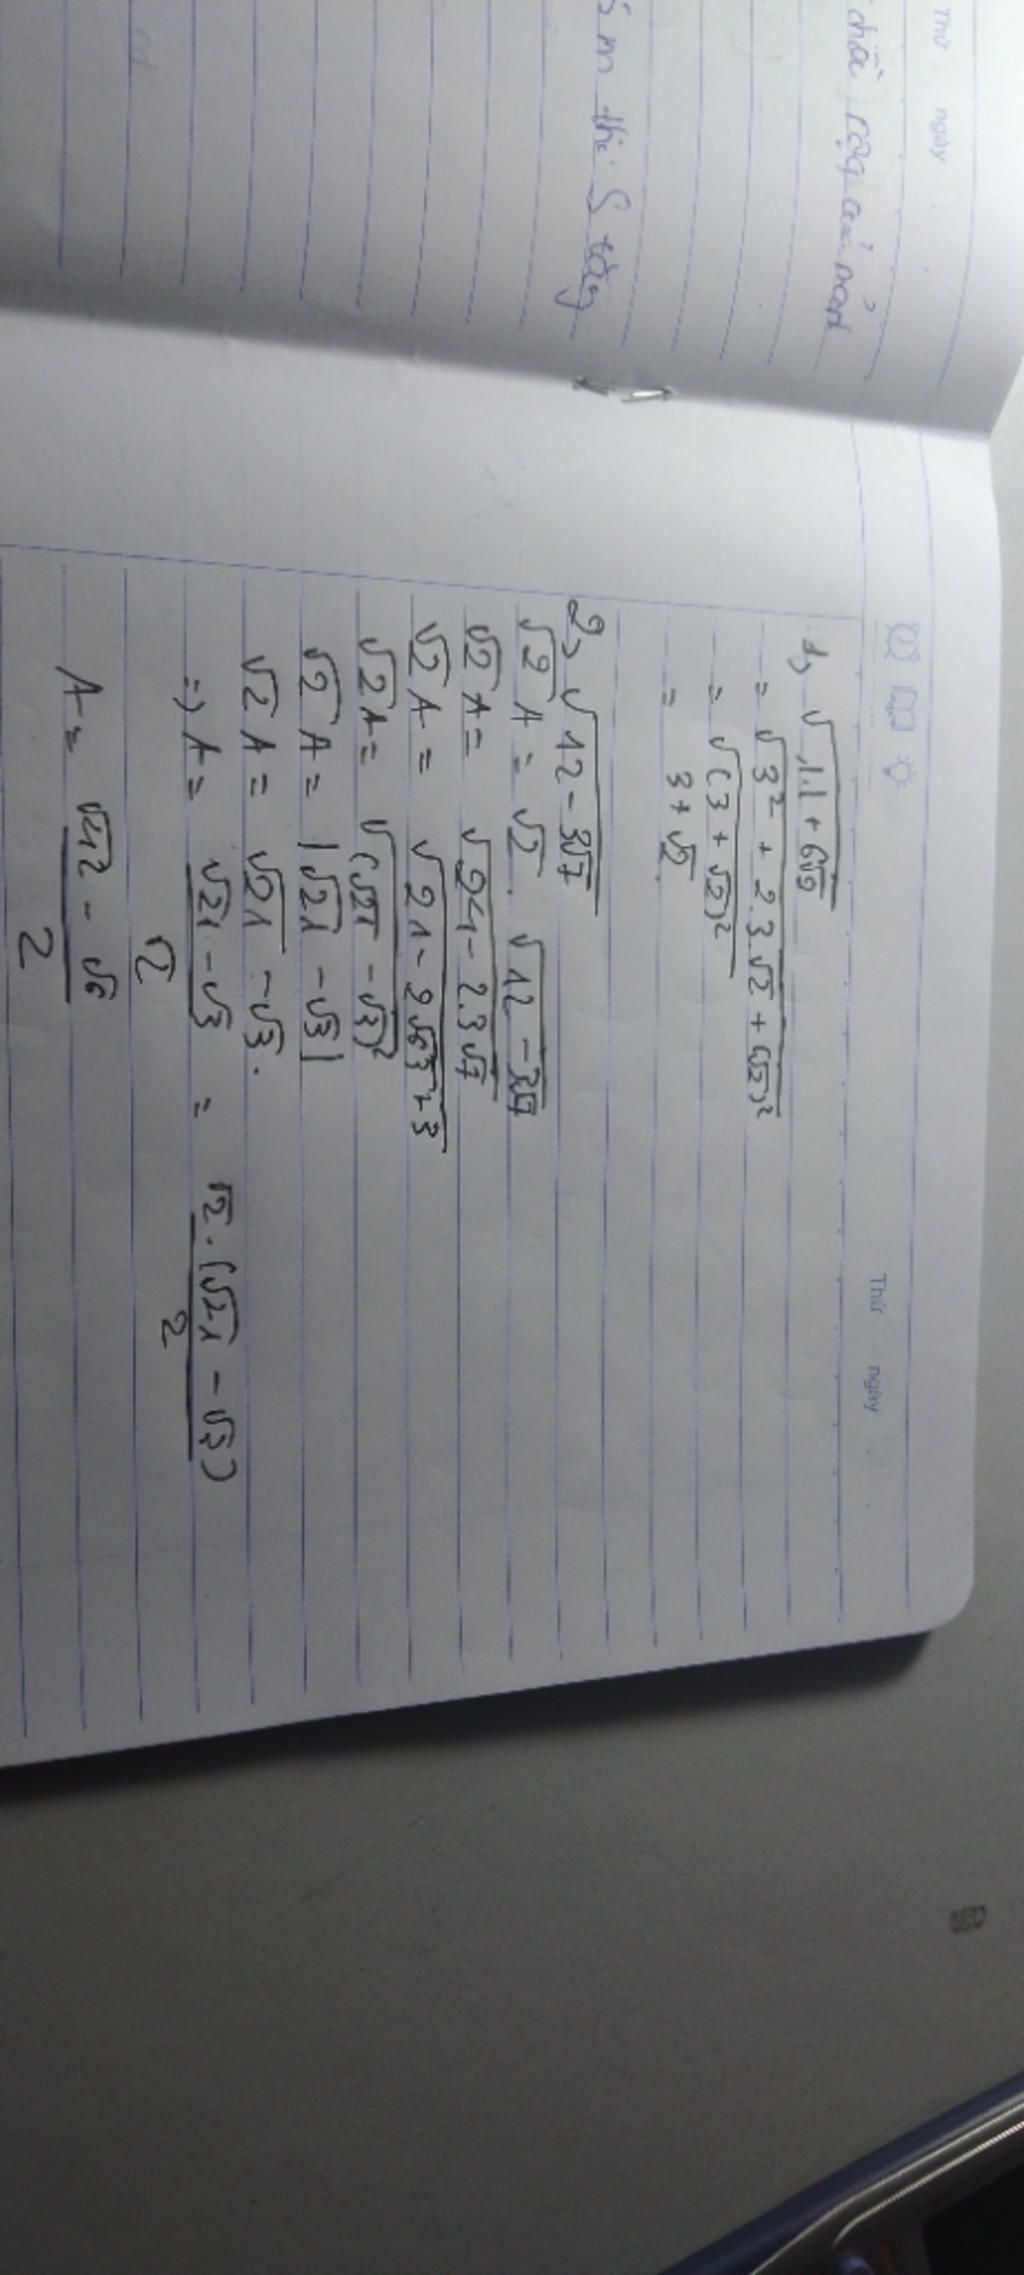 Thứ ngày
chất rộng của mảnh
m thì S tăng
Thứ ngày
1, √11+6√2
= √3² + 2.3.√2 + (√2)²
= √(3 + √2)²
= 3 + √2
2, √12-3√7
√2 A = √2 . √12-3√7
√2 A = √24-2.3√7
√2 A = √21-2√63+3
√2 A = √(√21-√3)²
√2 A = |√21 - √3|
√2 A = √21 - √3.
=> A = (√21-√3)/√2 = (√2.(√21-√3))/2
A = (√42 - √6)/2